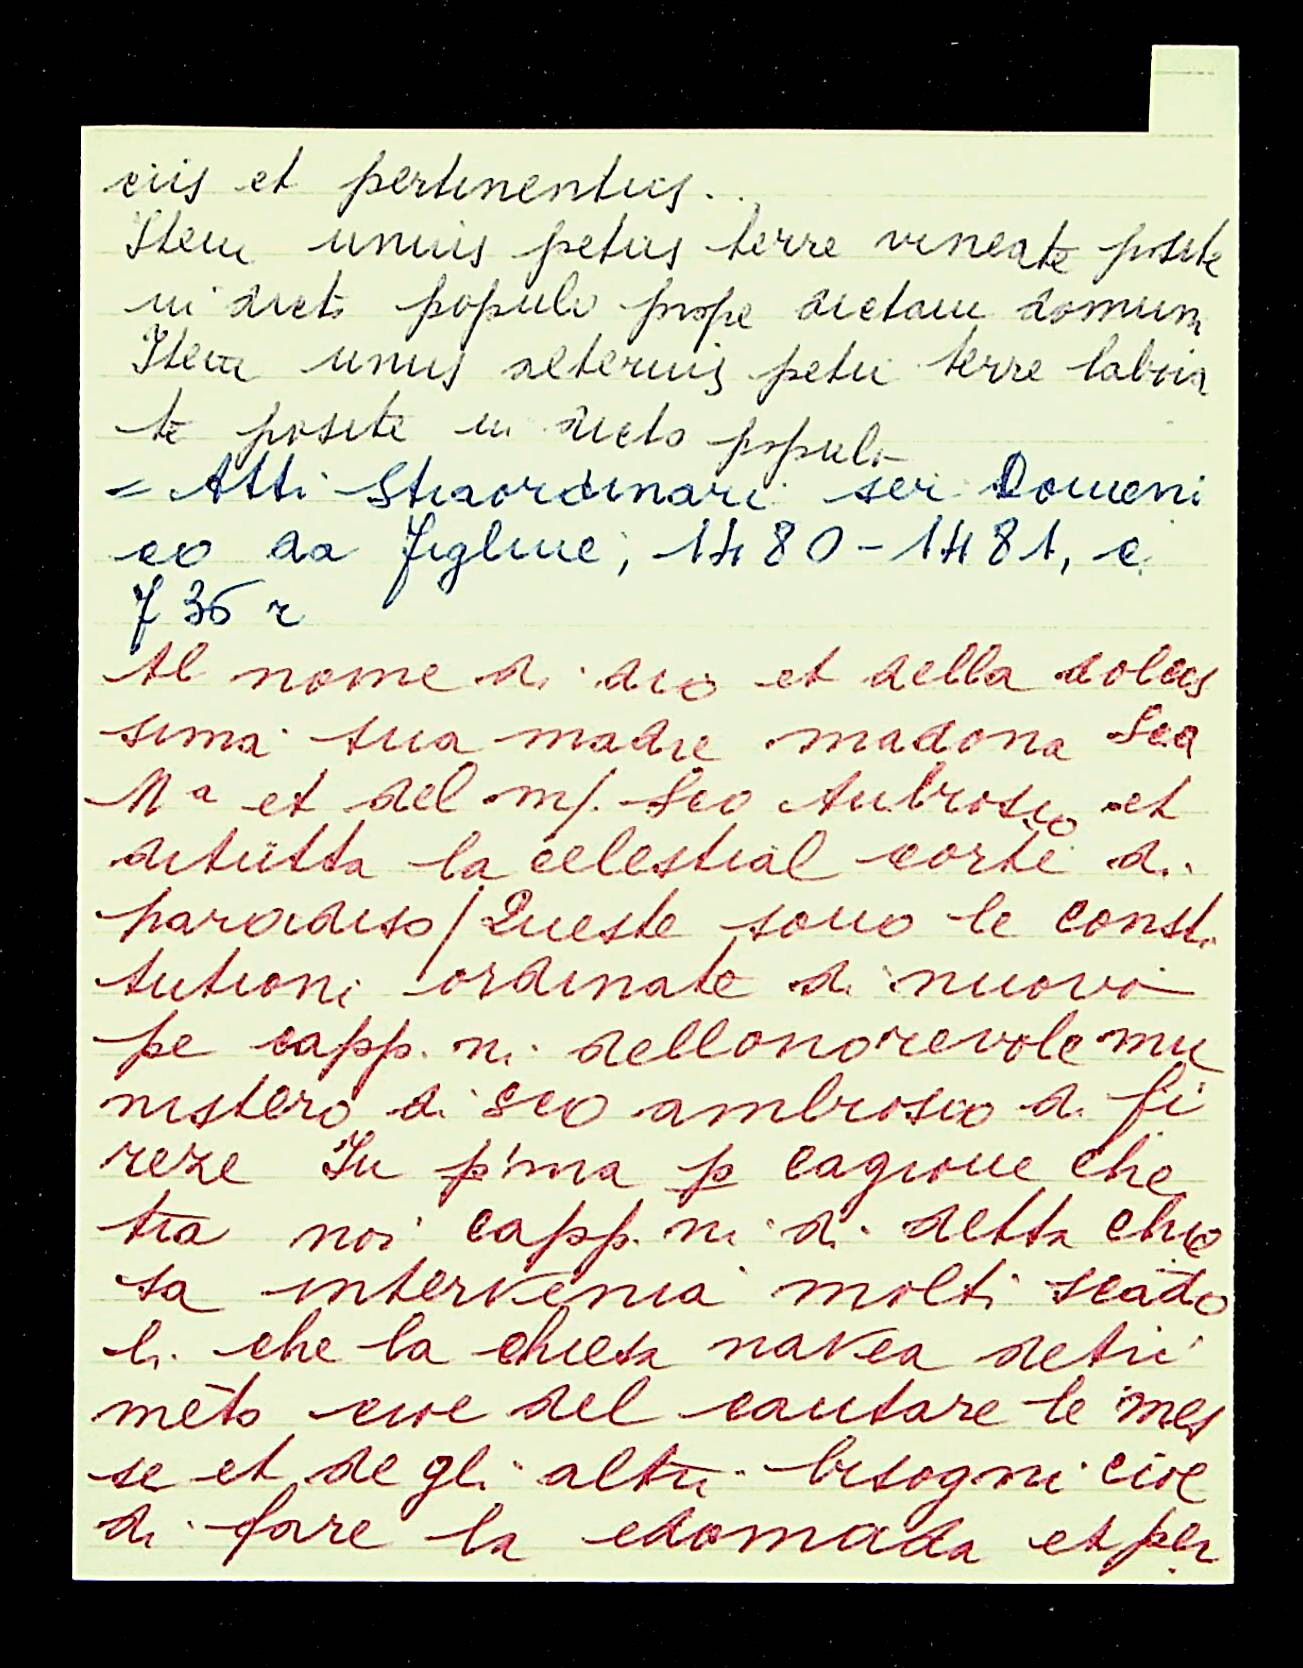 ciis et pertinentiis..
Item unius petius terre vineate posite
in dicto populo prope dictam domum
Item unius alterius petii terre labora
te posite in dicto populo
= Atti Straordinari ser Domeni
co da Figline, 1480-1481, c.
736 r
Al nome di dio et della dolcis
sima sua madre madona Sca
Mª et del m/. Sco Ambrosio et
ditutta la celestial corte di
paradiso/Queste sono le consti
tutioni ordinate di nuovo
pe capp.ni dellonorevole mu
nistero di Sco ambrosio di fi
reze In p'ma p cagione che
tra noi capp.ni di detta chie
sa intervenia molti scādo
li che la chiesa navea detri
mēto cioe del cantare le mes
se et degli altri bisogni cioe
di fare la edomada et per